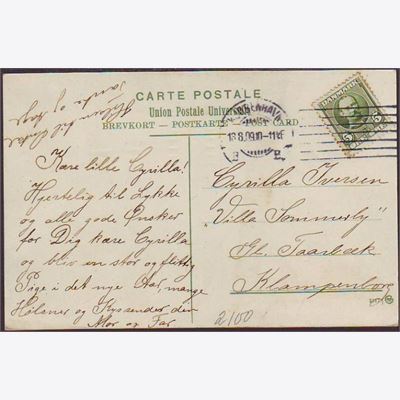 CARTE POSTALE
Union Postale Universelle
BREVKORT — POSTKARTE — POST CARD
KJØBENHAVN
18.8.09.10-11F
B.
DANMARK
5 5
Hilsen til
tante og
Kære lille Cyrilla!
Hjertelig til Lykke
og alle gode Ønsker
for Dig kære Cyrilla
og bliv en stor og flittig
Pige i det nye Aar, mange
Hilsner og Kys sender din
Mor og Far
Cyrilla Iversen
"Villa Sommerly"
Gl. Taarbæk
Klampenborg
2/100